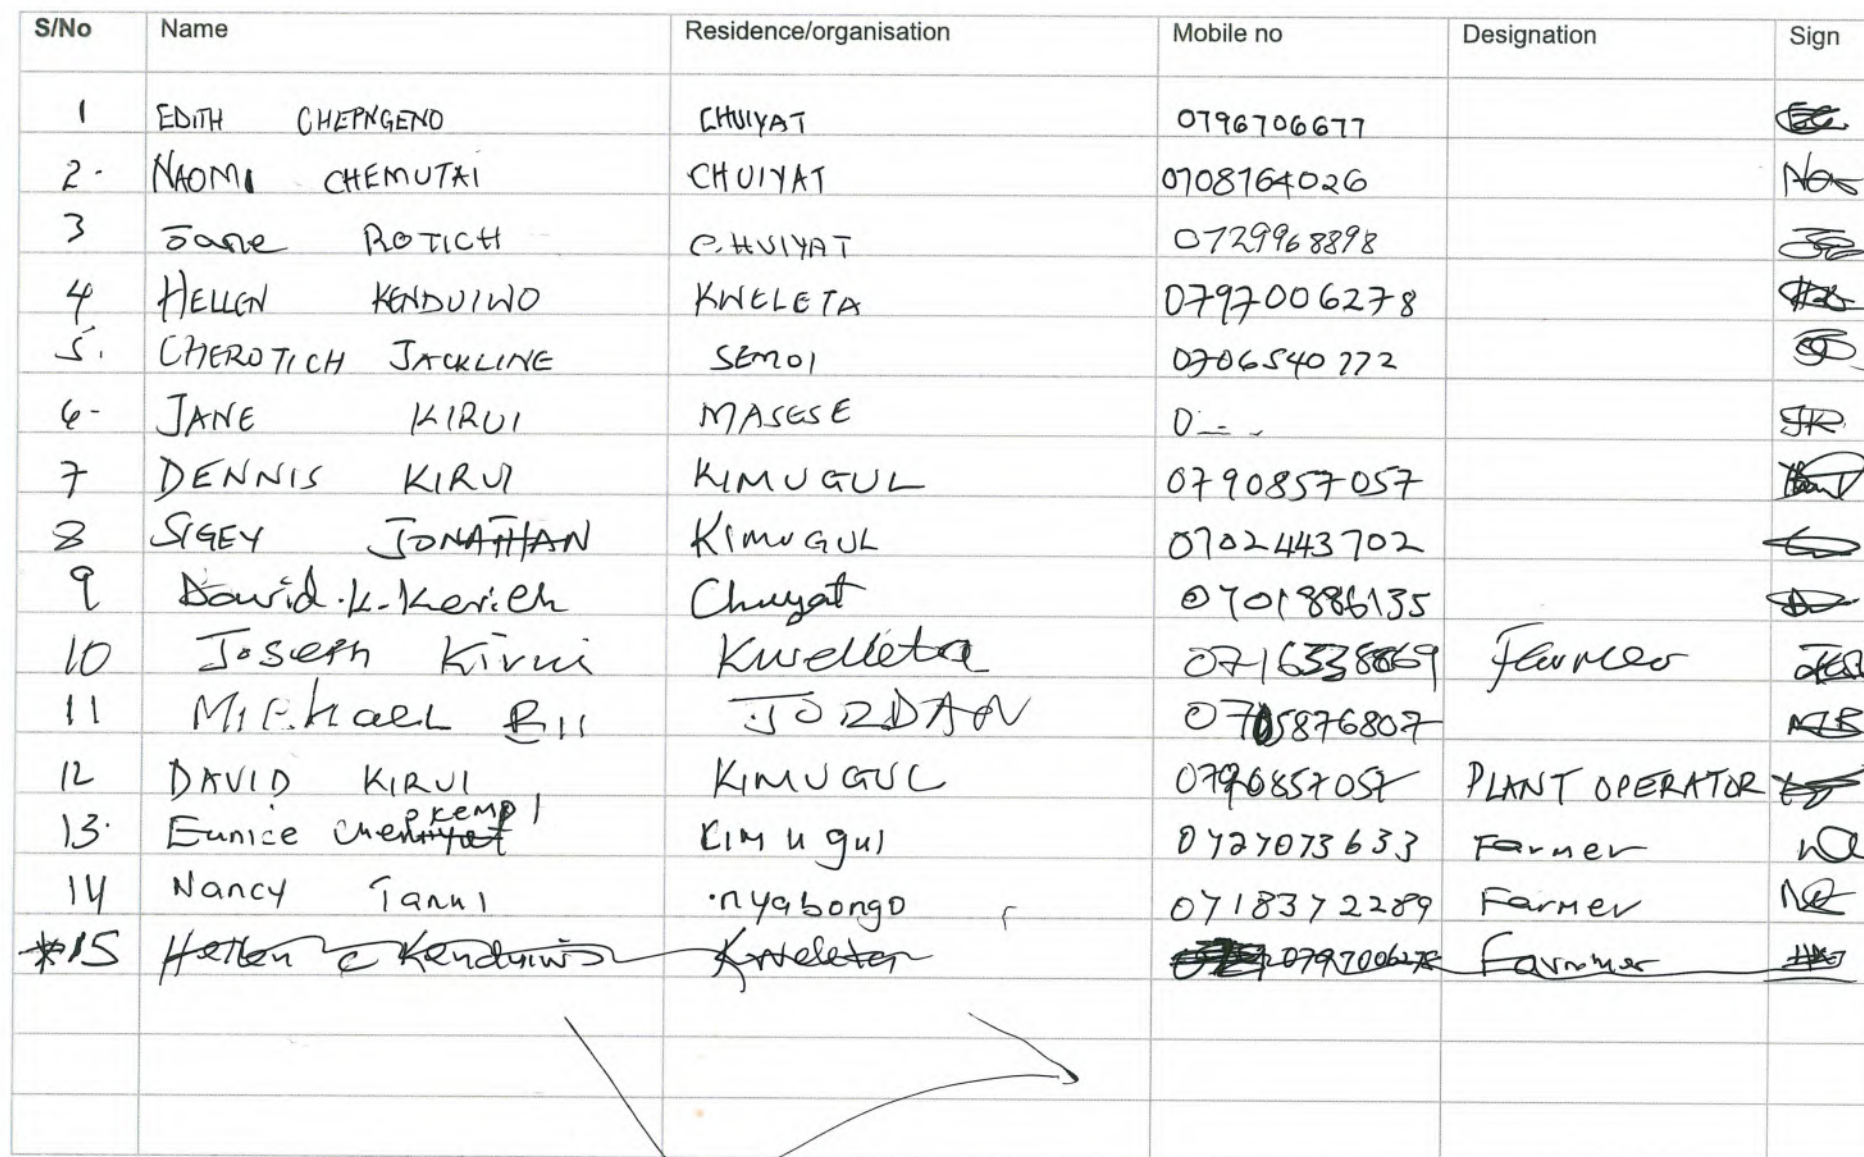 S/No Name Residence/organisation Mobile no Designation Sign
1 EDITH CHEPNGENO CHUIYAT 0796706677
2. NAOMI CHEMUTAI CHUIYAT 0708764026
3 Jane ROTICH CHUIYAT 0729968898
4 HELLEN KENDUIWO KWELETA 0797006278
5. CHEROTICH JACKLINE SEMOI 0706540772
6- JANE KIRUI MASESE 0---  JK
7 DENNIS KIRUI KIMUGUL 0790857057
8 SIGEY JONATHAN KIMUGUL 0702443702
9 David.K.Kerich Chuyat 0701886135
10 Joseph Kirui Kwelleta Farmer
11 Michael Bii JORDAN
12 DAVID KIRUI KIMUGUL 0790857057 PLANT OPERATOR
13. Eunice Kimugul 0727073633 Farmer
14 Nancy Tanui nyabongo 0718372289 Farmer
*15 Hellen c Kenduiwo Kweleta 0797006278 Farmer